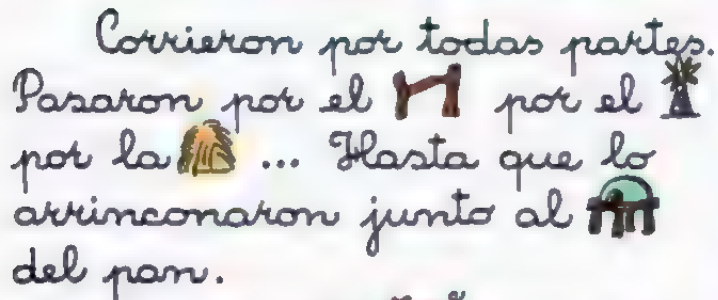 Corrieron por todas partes.
Pasaron por el por el
por la ... Hasta que lo
arrinconaron junto al
del pan.